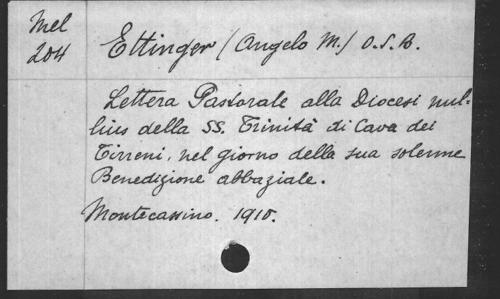 Mel
204
Ettinger (Angelo M.) O.S.B.
Lettera Pastorale alla Diocesi nul-
lius della SS. Trinità di Cava dei
Tirreni, nel giorno della sua solenne
Benedizione abbaziale.
Montecassino. 1910.